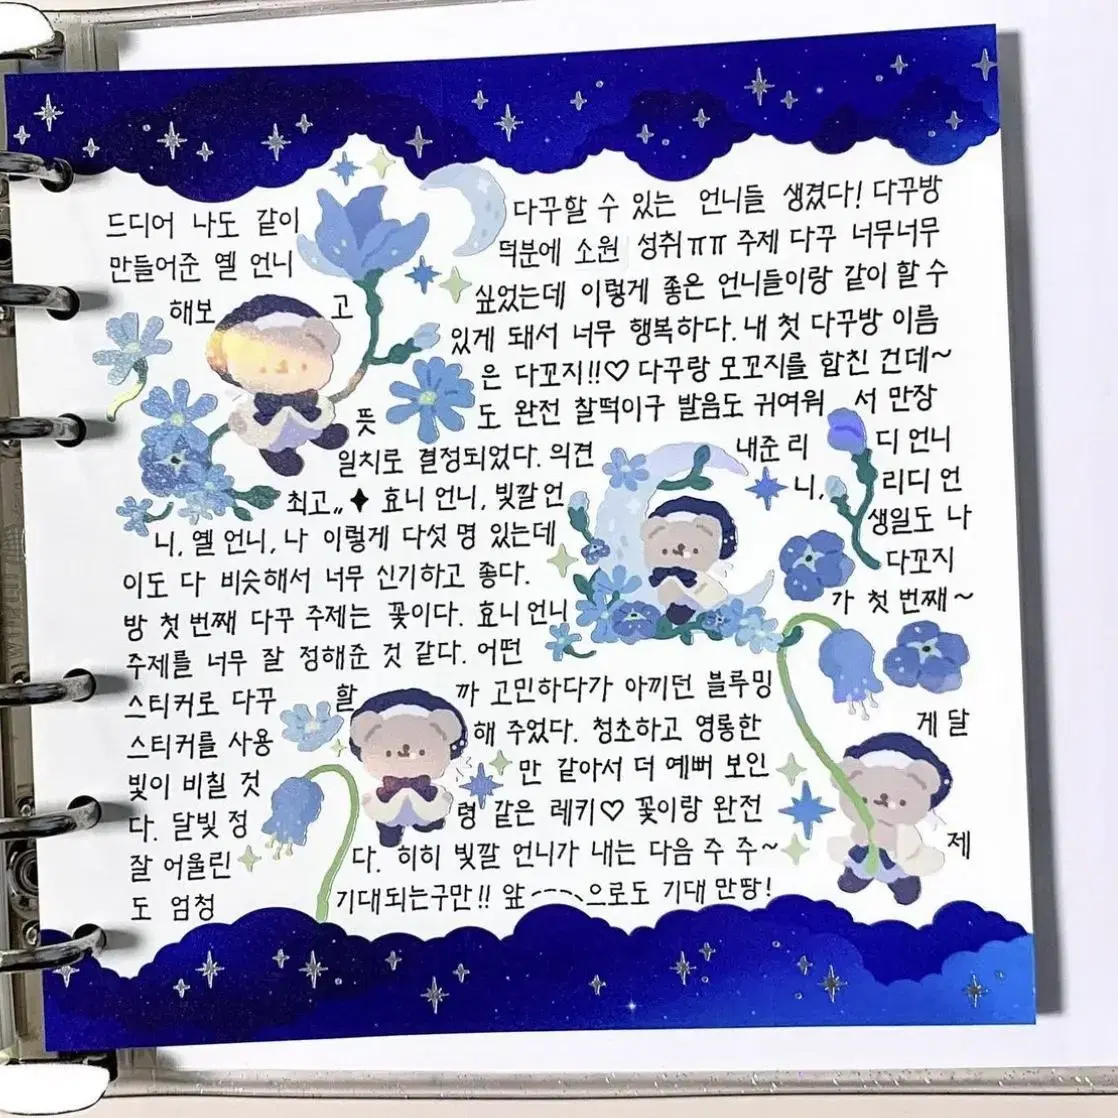 드디어 나도 같이 다꾸할 수 있는 언니들 생겼다! 다꾸방
만들어준 옐 언니 덕분에 소원 성취ㅠㅠ 주제 다꾸 너무너무
해보고 싶었는데 이렇게 좋은 언니들이랑 같이 할 수
있게 돼서 너무 행복하다. 내 첫 다꾸방 이름
은 다꼬지!!♡ 다꾸랑 모꼬지를 합친 건데~
뜻도 완전 찰떡이구 발음도 귀여워서 만장
일치로 결정되었다. 의견 내준 리디 언니
최고,,✦ 효니 언니, 빛깔 언니, 리디 언
니, 옐 언니, 나 이렇게 다섯 명 있는데 생일도 나
이도 다 비슷해서 너무 신기하고 좋다. 다꼬지
방 첫 번째 다꾸 주제는 꽃이다. 효니 언니가 첫 번째~
주제를 너무 잘 정해준 것 같다. 어떤
스티커로 다꾸할까 고민하다가 아끼던 블루밍
스티커를 사용해 주었다. 청초하고 영롱한 게 달
빛이 비칠 것만 같아서 더 예뻐 보인
다. 달빛 정령 같은 레키♡ 꽃이랑 완전
잘 어울린다. 히히 빛깔 언니가 내는 다음 주 주~제
도 엄청 기대되는구만!! 앞----으로도 기대 만땅!